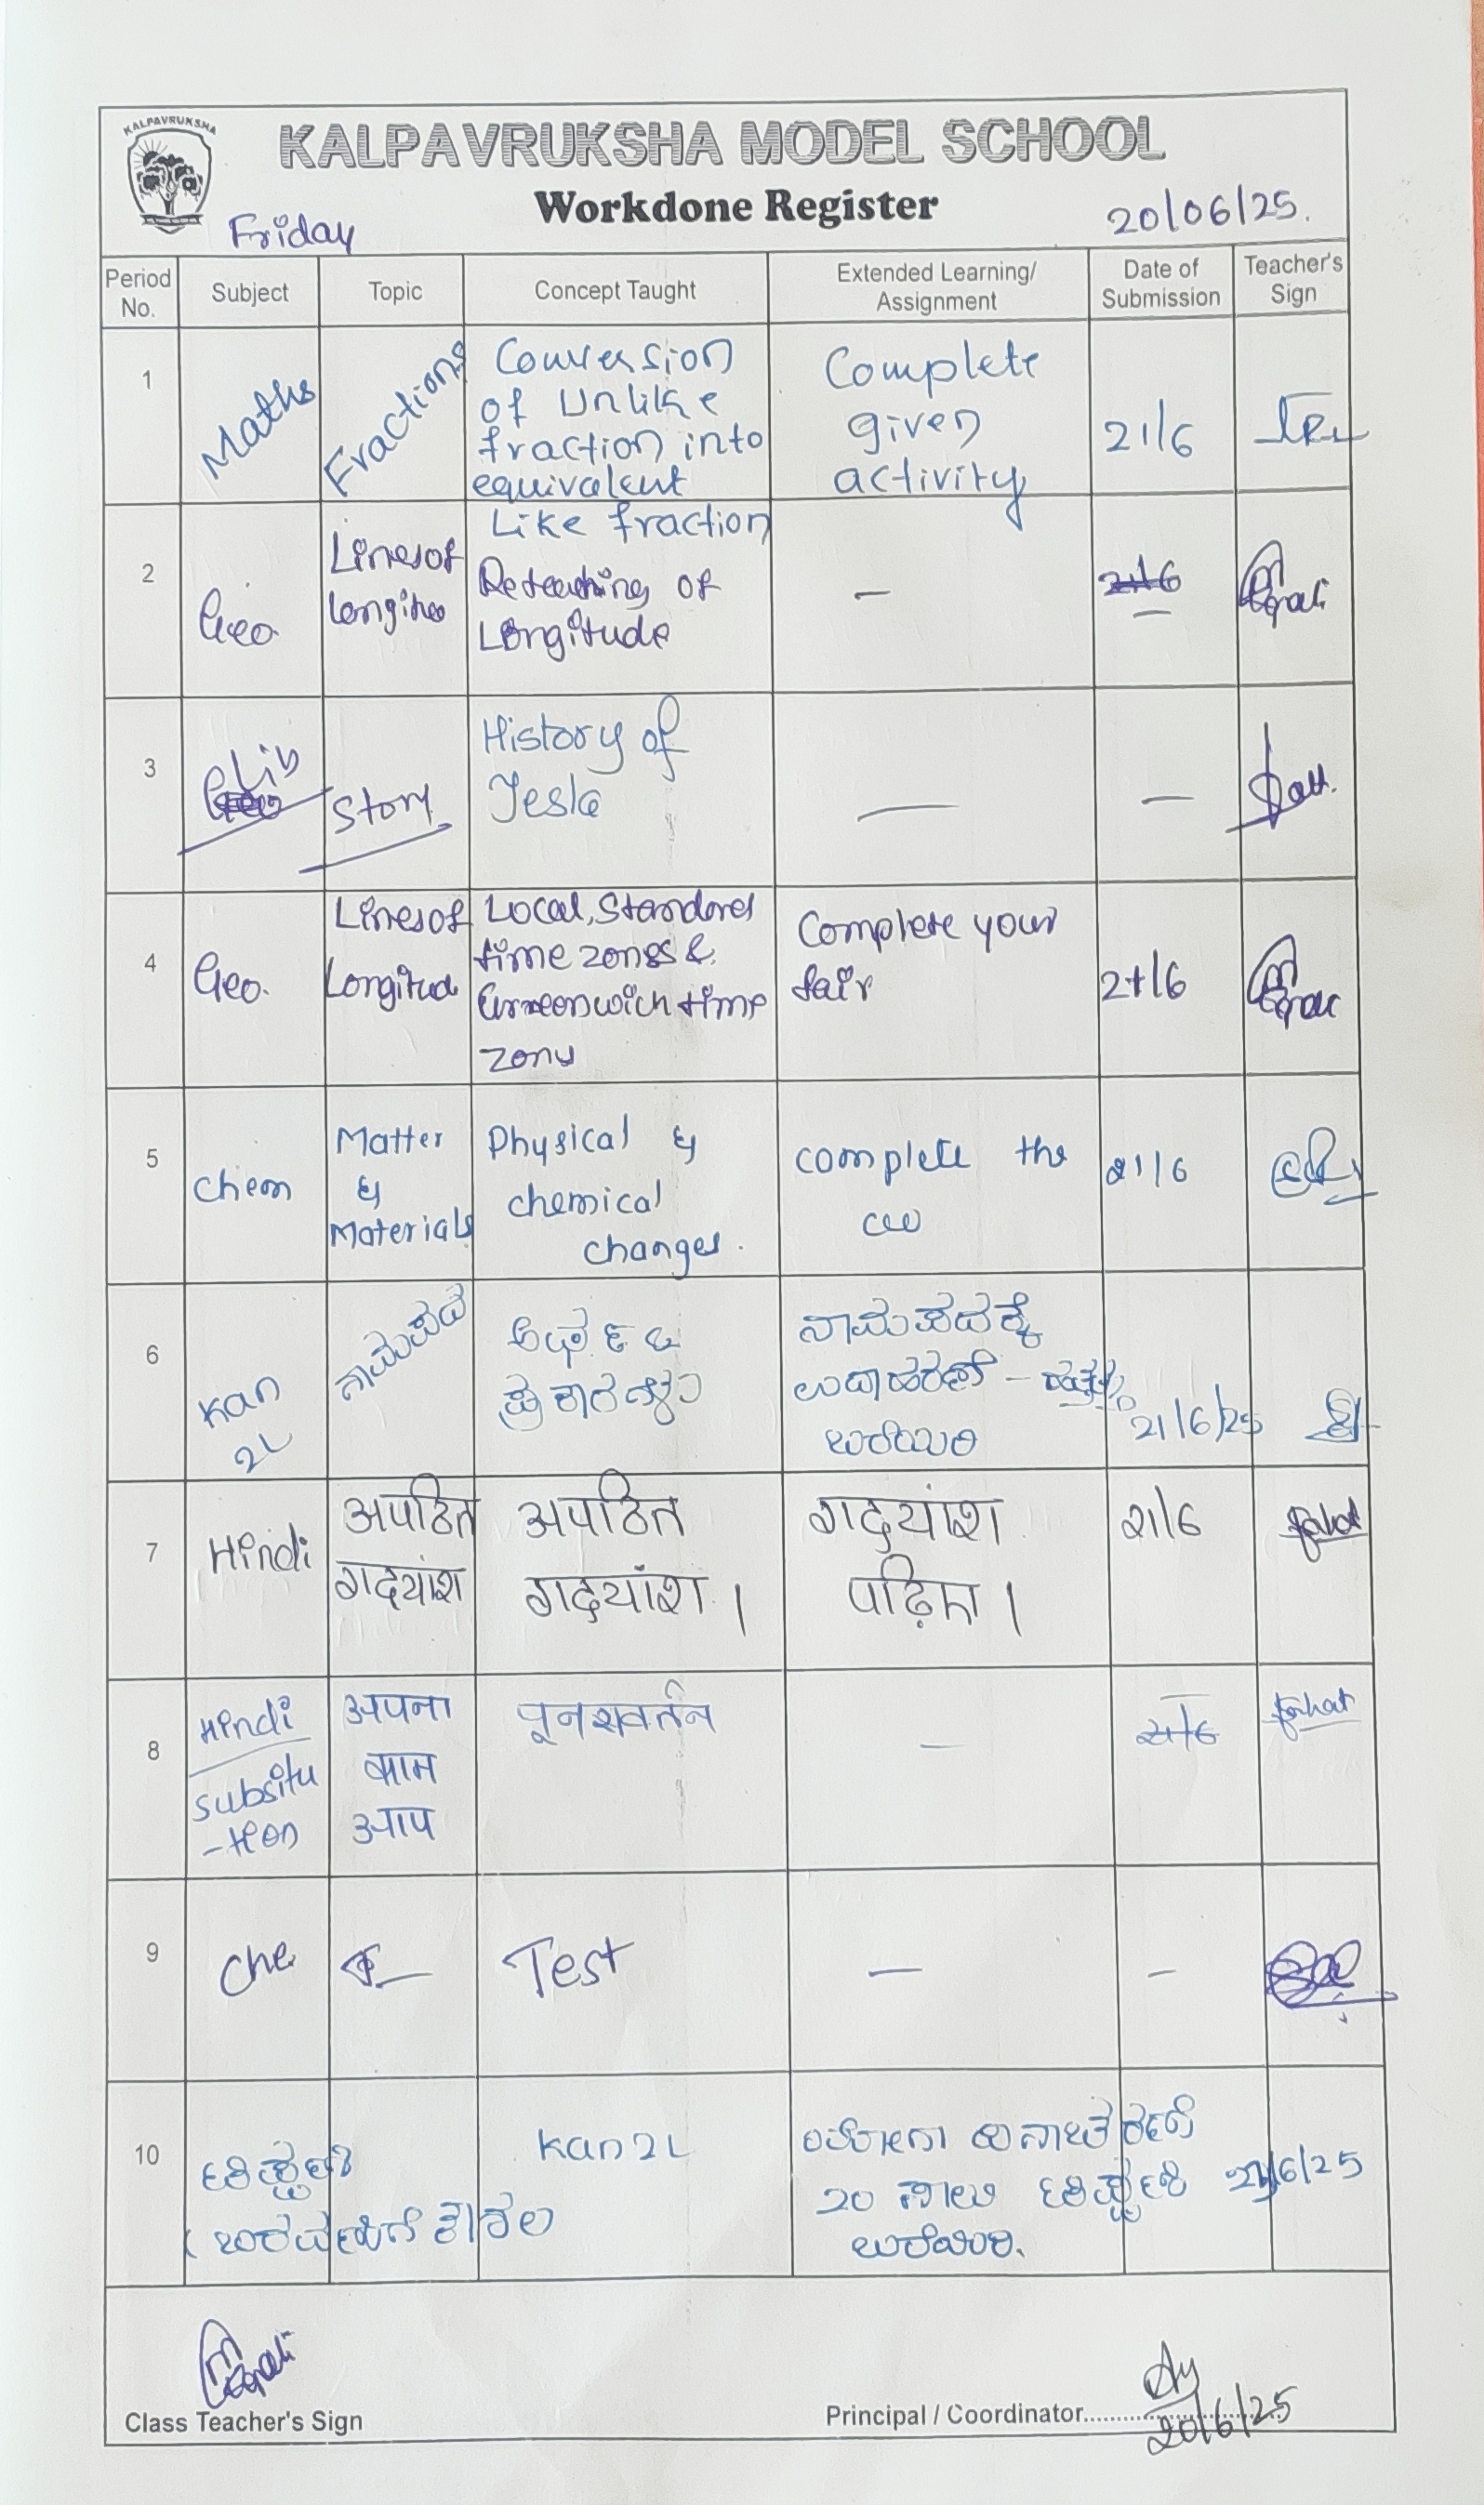 KALPAVRUKSHA
KALPAVRUKSHA MODEL SCHOOL
Workdone Register
Friday
20/06/25.
Period No.
Subject
Topic
Concept Taught
Extended Learning/
Assignment
Date of
Submission
Teacher's
Sign
1
Maths
Fractions
Conversion
of Unlike
fraction into
equivalent
Like fraction
Complete
given
activity
21/6
2
Geo.
Lines of
Reteaching of
Longitude
—
—
3
Lib
Story
History of
Tesla
—
—
4
Geo.
Lines of
Longitud
Local, Standard
time zones &
Greenwich time
zone
Complete your
fair
21/6
5
Chem
Matter
&
Materials
Physical &
chemical
changes.
complete the
cw
21/6
6
Kan
2L
ನಾಮಪದ
ಅರ್ಥ &
ಪ್ರಕಾರಗಳು
ನಾಮಪದಕ್ಕೆ
ಉದಾಹರಣೆ -
ಬರೆಯಿರಿ
21/6/25
7
Hindi
अपठित
गद्यांश
अपठित
गद्यांश ।
गद्यांश
पढ़िए ।
21/6
8
Hindi
subsitu
-tion
अपना
काम
आप
पूनरावर्तन
—
9
Che
—
Test
—
—
10
Kan 2L
20 ಸಾಲು
ಬರೆಯಿರಿ.
21/6/25
Class Teacher's Sign
Principal / Coordinator
20/6/25